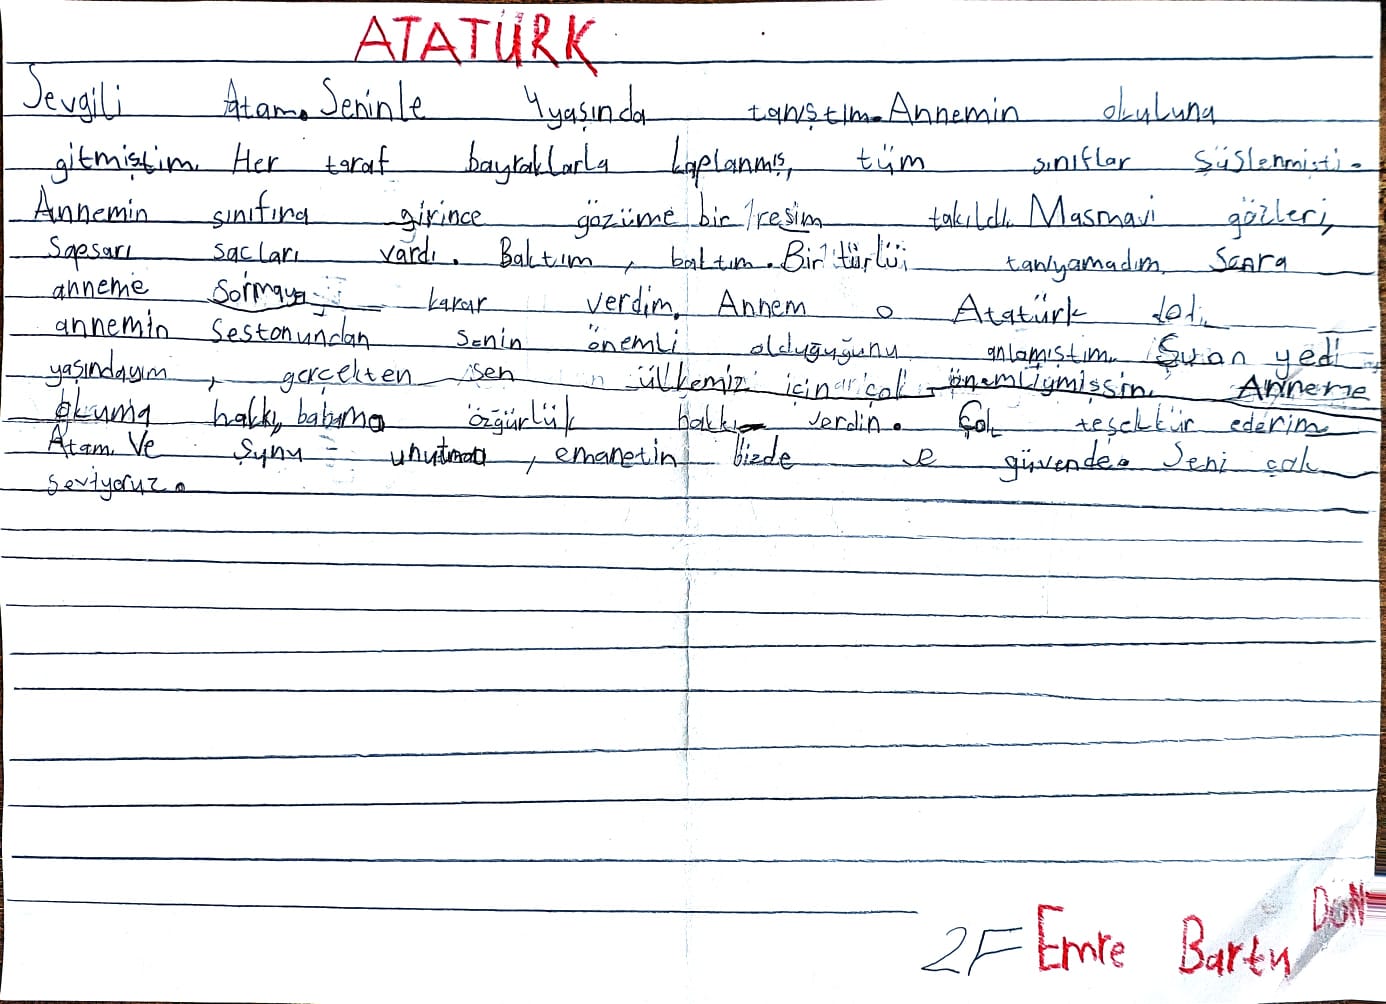 ATATÜRK
Sevgili Atam. Seninle 4 yaşında tanıştım. Annemin okuluna
gitmiştim. Her taraf bayraklarla kaplanmış, tüm sınıflar süslenmişti.
Annemin sınıfına girince gözüme bir resim takıldı. Masmavi gözleri,
Sapsarı saçları vardı. Baktım, baktım. Bir türlü tanıyamadım. Sonra
anneme Sormaya karar verdim. Annem o Atatürk dedi.
annemin Sestonundan senin önemli olduğuğunu anlamıştım. Şuan yedi
yaşındayım, gerçekten sen ülkemiz için çok önemliymişsin. Anneme
okuma hakkı, babama özgürlük hakkı verdin. Çok teşekkür ederim
Atam. Ve Şunu unutma, emanetin bizde ve güvende. Seni çok
seviyoruz.
DÖN
2F Emre Bartu